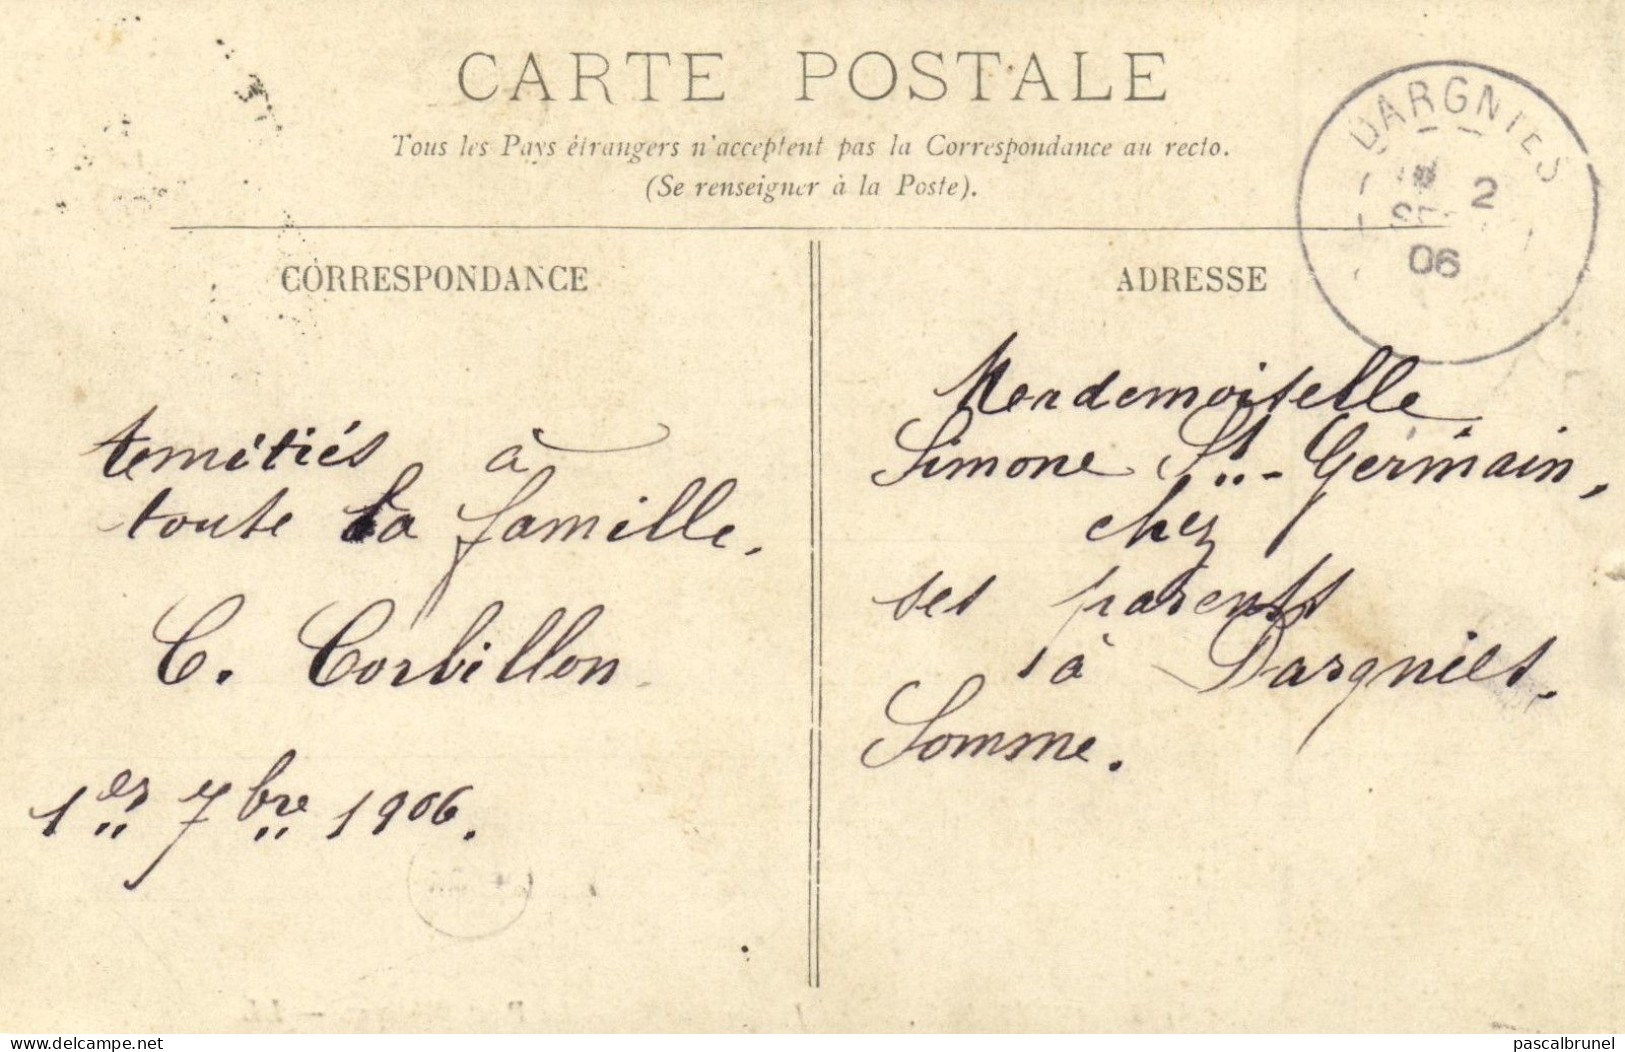 CARTE POSTALE
Tous les Pays étrangers n'acceptent pas la Correspondance au recto.
(Se renseigner à la Poste).
DARGNIES
2
06
CORRESPONDANCE
ADRESSE
amitiés à
toute la famille.
C. Corbillon
1er 7bre 1906.
Mademoiselle
Simone St-Germain,
chez
ses parents
à Dargnies.
Somme.
www.delcampe.net
pascalbrunel